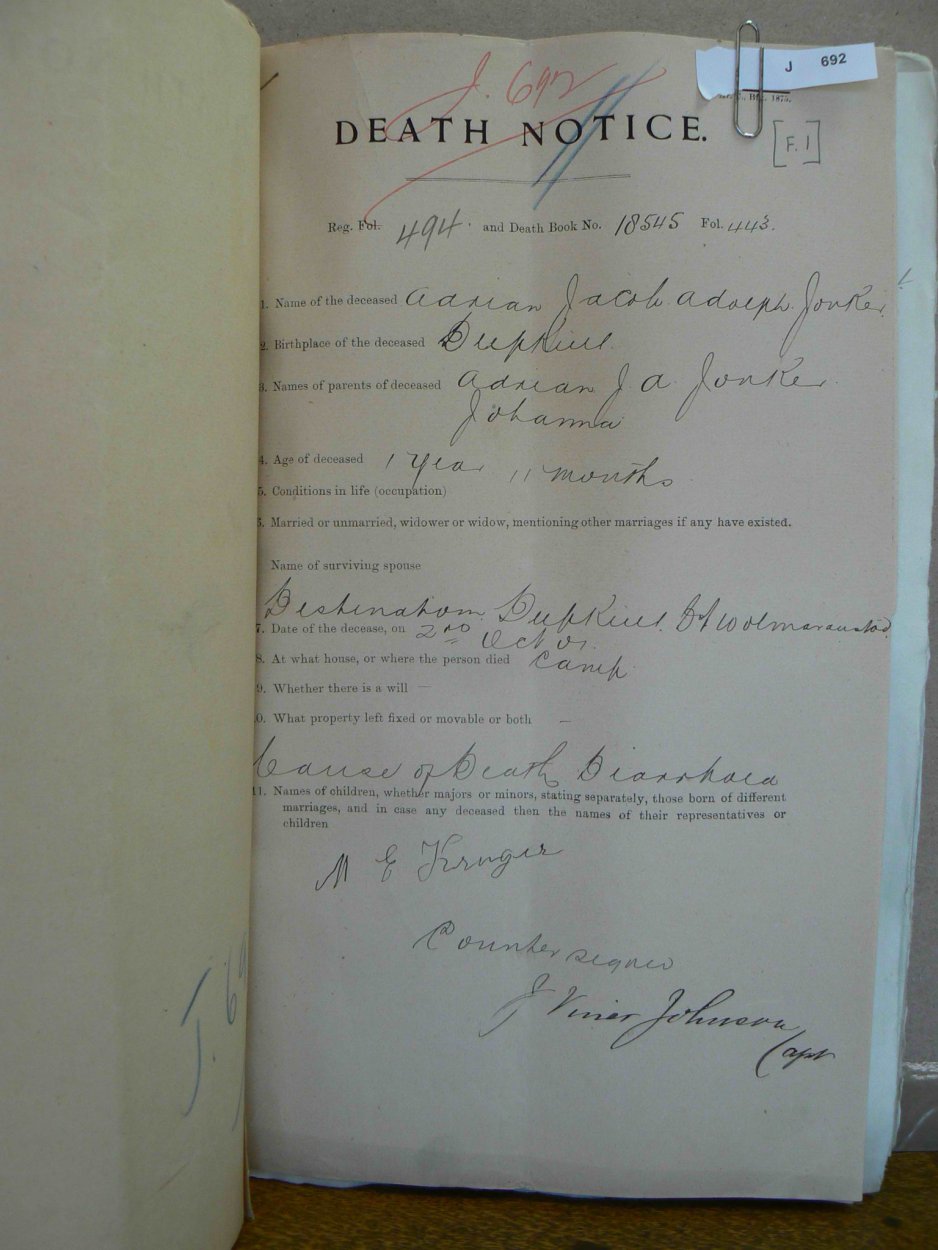 J 692
J. 692
DEATH NOTICE.
[F. 1]
Reg. Fol. 494. and Death Book No. 18545 Fol. 443.
1. Name of the deceased Adrian Jacob Adolph Jonker
2. Birthplace of the deceased
3. Names of parents of deceased Adrian J A Jonker
Johanna
4. Age of deceased 1 Year 11 months
5. Conditions in life (occupation)
6. Married or unmarried, widower or widow, mentioning other marriages if any have existed.
Name of surviving spouse
Destination Dt Wolmaranstad
7. Date of the decease, on 2nd Oct 01.
8. At what house, or where the person died Camp
9. Whether there is a will —
10. What property left fixed or movable or both —
Cause of Death Diarrhoea
11. Names of children, whether majors or minors, stating separately, those born of different
marriages, and in case any deceased then the names of their representatives or
children
M E Kruger
Counter signed
J Viner Johnson
Capt